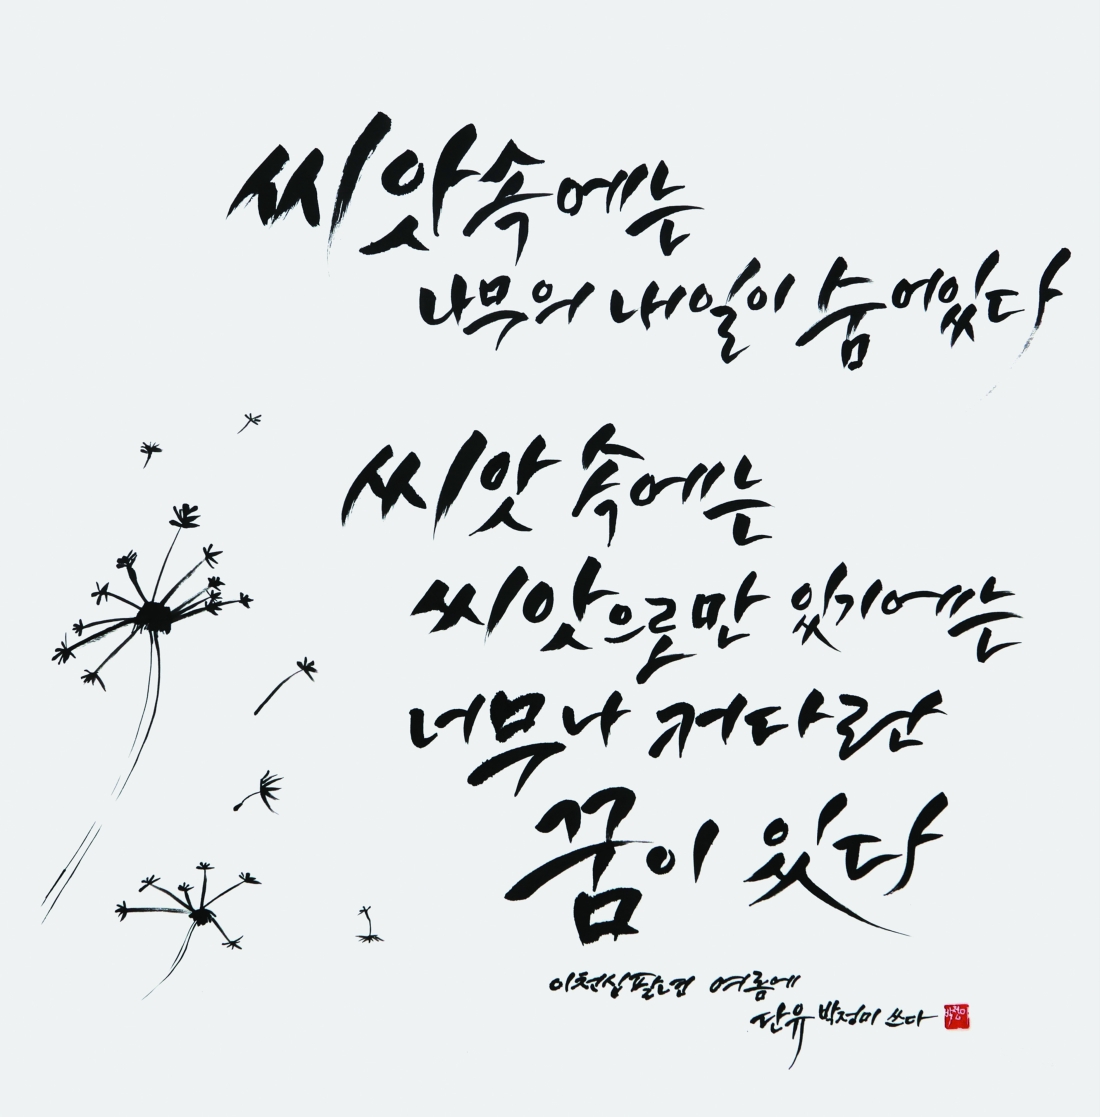 씨앗속에는
나무의 내일이 숨어있다
씨앗 속에는
씨앗으로만 있기에는
너무나 커다란
꿈이 있다
이천십팔년 여름에
단유 박정미 쓰다
박정미